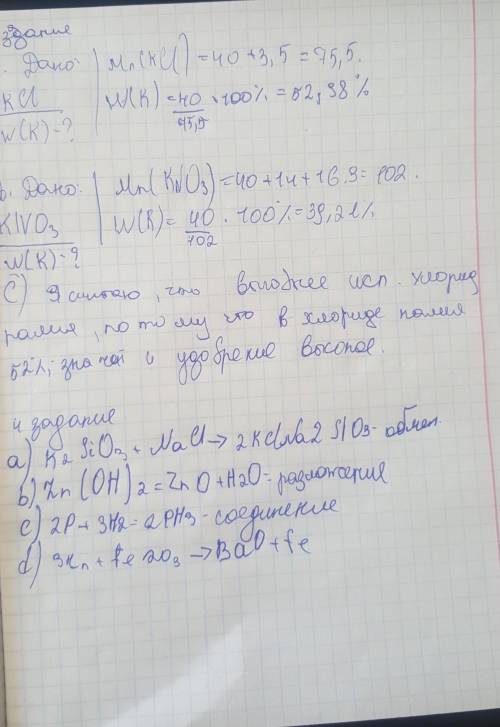 задание
Дано: Mr(KCl) = 40+3,5 = 75,5.
KCl W(K) = 40/75,5 · 100% = 52,98%
W(K)-?
b. Дано: Mr(KNO3) = 40+14+16.3 = 102.
KNO3 W(K) = 40/102 · 100% = 39,21%
W(K)-?
C) Я считаю, что выгоднее исп. хлорид
калия, потому что в хлориде калия
52%, значит и удобрение высокое.
4 задание
a) K2SiO3 + NaCl → 2KClNa2SiO3 - обмен.
b) Zn(OH)2 = ZnO + H2O - разложения
c) 2P + 3H2 = 2PH3 - соединение
d) 3Zn + Fe2O3 → BaO + Fe